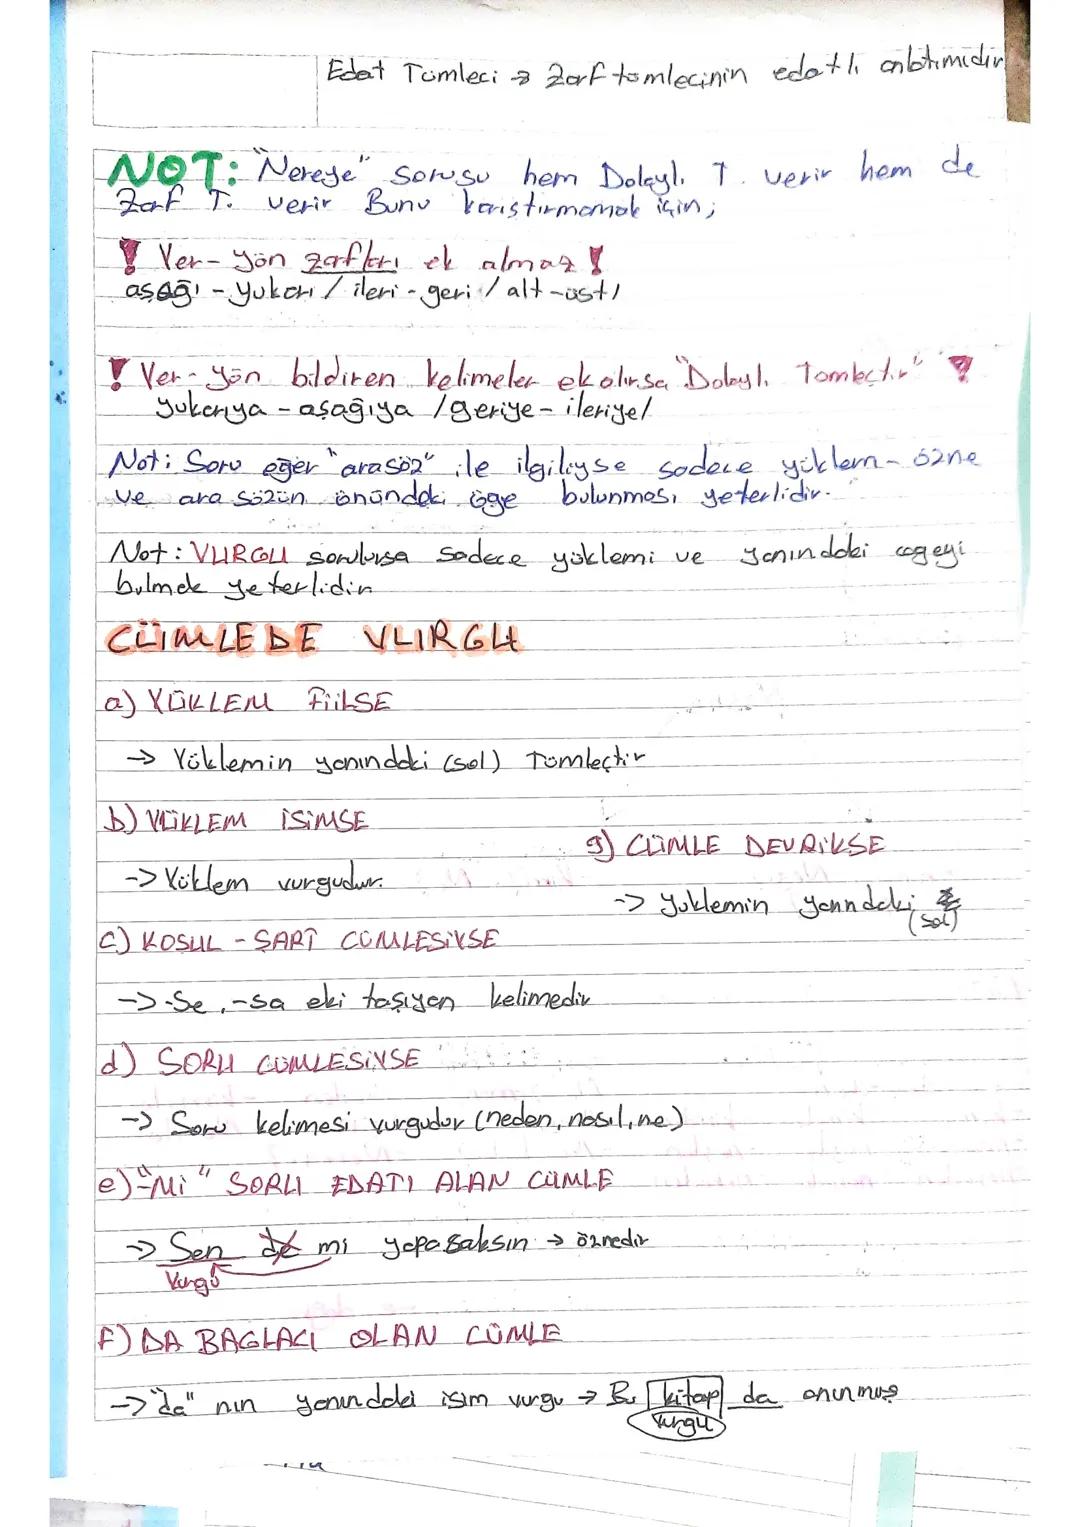 Edat Tümleci → Zarf tümlecinin edatlı anlatımıdır
NOT: "Nereye" sorusu hem Dolaylı T. verir hem de
Zarf T. verir Bunu karıştırmamak için;
! Yer-yön zarfları ek almaz !
aşağı - yukarı / ileri - geri / alt - üst /
! Yer-yön bildiren kelimeler ek alırsa "Dolaylı Tümleçtir" !
yukarıya - aşağıya / geriye - ileriye /
Not: Soru eğer "arasöz" ile ilgiliyse sadece yüklem - özne
ve ara sözün önündeki öge bulunması yeterlidir.
Not: VURGU sorulursa sadece yüklemi ve yanındaki ögeyi
bulmak yeterlidir
CÜMLEDE VURGU
a) YÜKLEM FİİLSE
→ Yüklemin yanındaki (sol) Tümleçtir
b) YÜKLEM İSİMSE
→ Yüklem vurgudur.
g) CÜMLE DEVRİKSE
→ Yuklemin yanındaki (sol)
c) KOŞUL - ŞART CÜMLESİYSE
→ -Se, -sa eki taşıyan kelimedir
d) SORU CÜMLESİYSE
→ Soru kelimesi vurgudur (neden, nasıl, ne)
e) "Mi" SORU EDATI ALAN CÜMLE
→ Sen de mi yapasaksın → öznedir
Vurgu
f) DA BAĞLACI OLAN CÜMLE
→ "da" nın yanındaki isim vurgu → Bu kitap da onunmuş
Vurgu